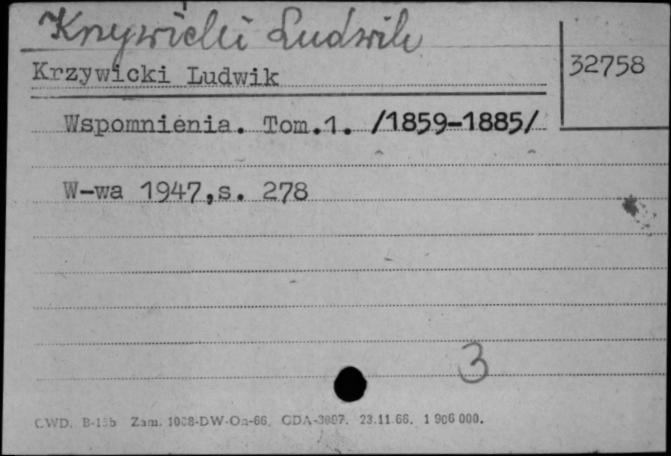 Krzywicki Ludwik
32758
Krzywicki Ludwik
Wspomnienia. Tom.1. /1859-1885/
W-wa 1947,s. 278
3
CWD. B-15b Zam. 1008-DW-On-66. GDA-3097. 23.11.66. 1 906 000.